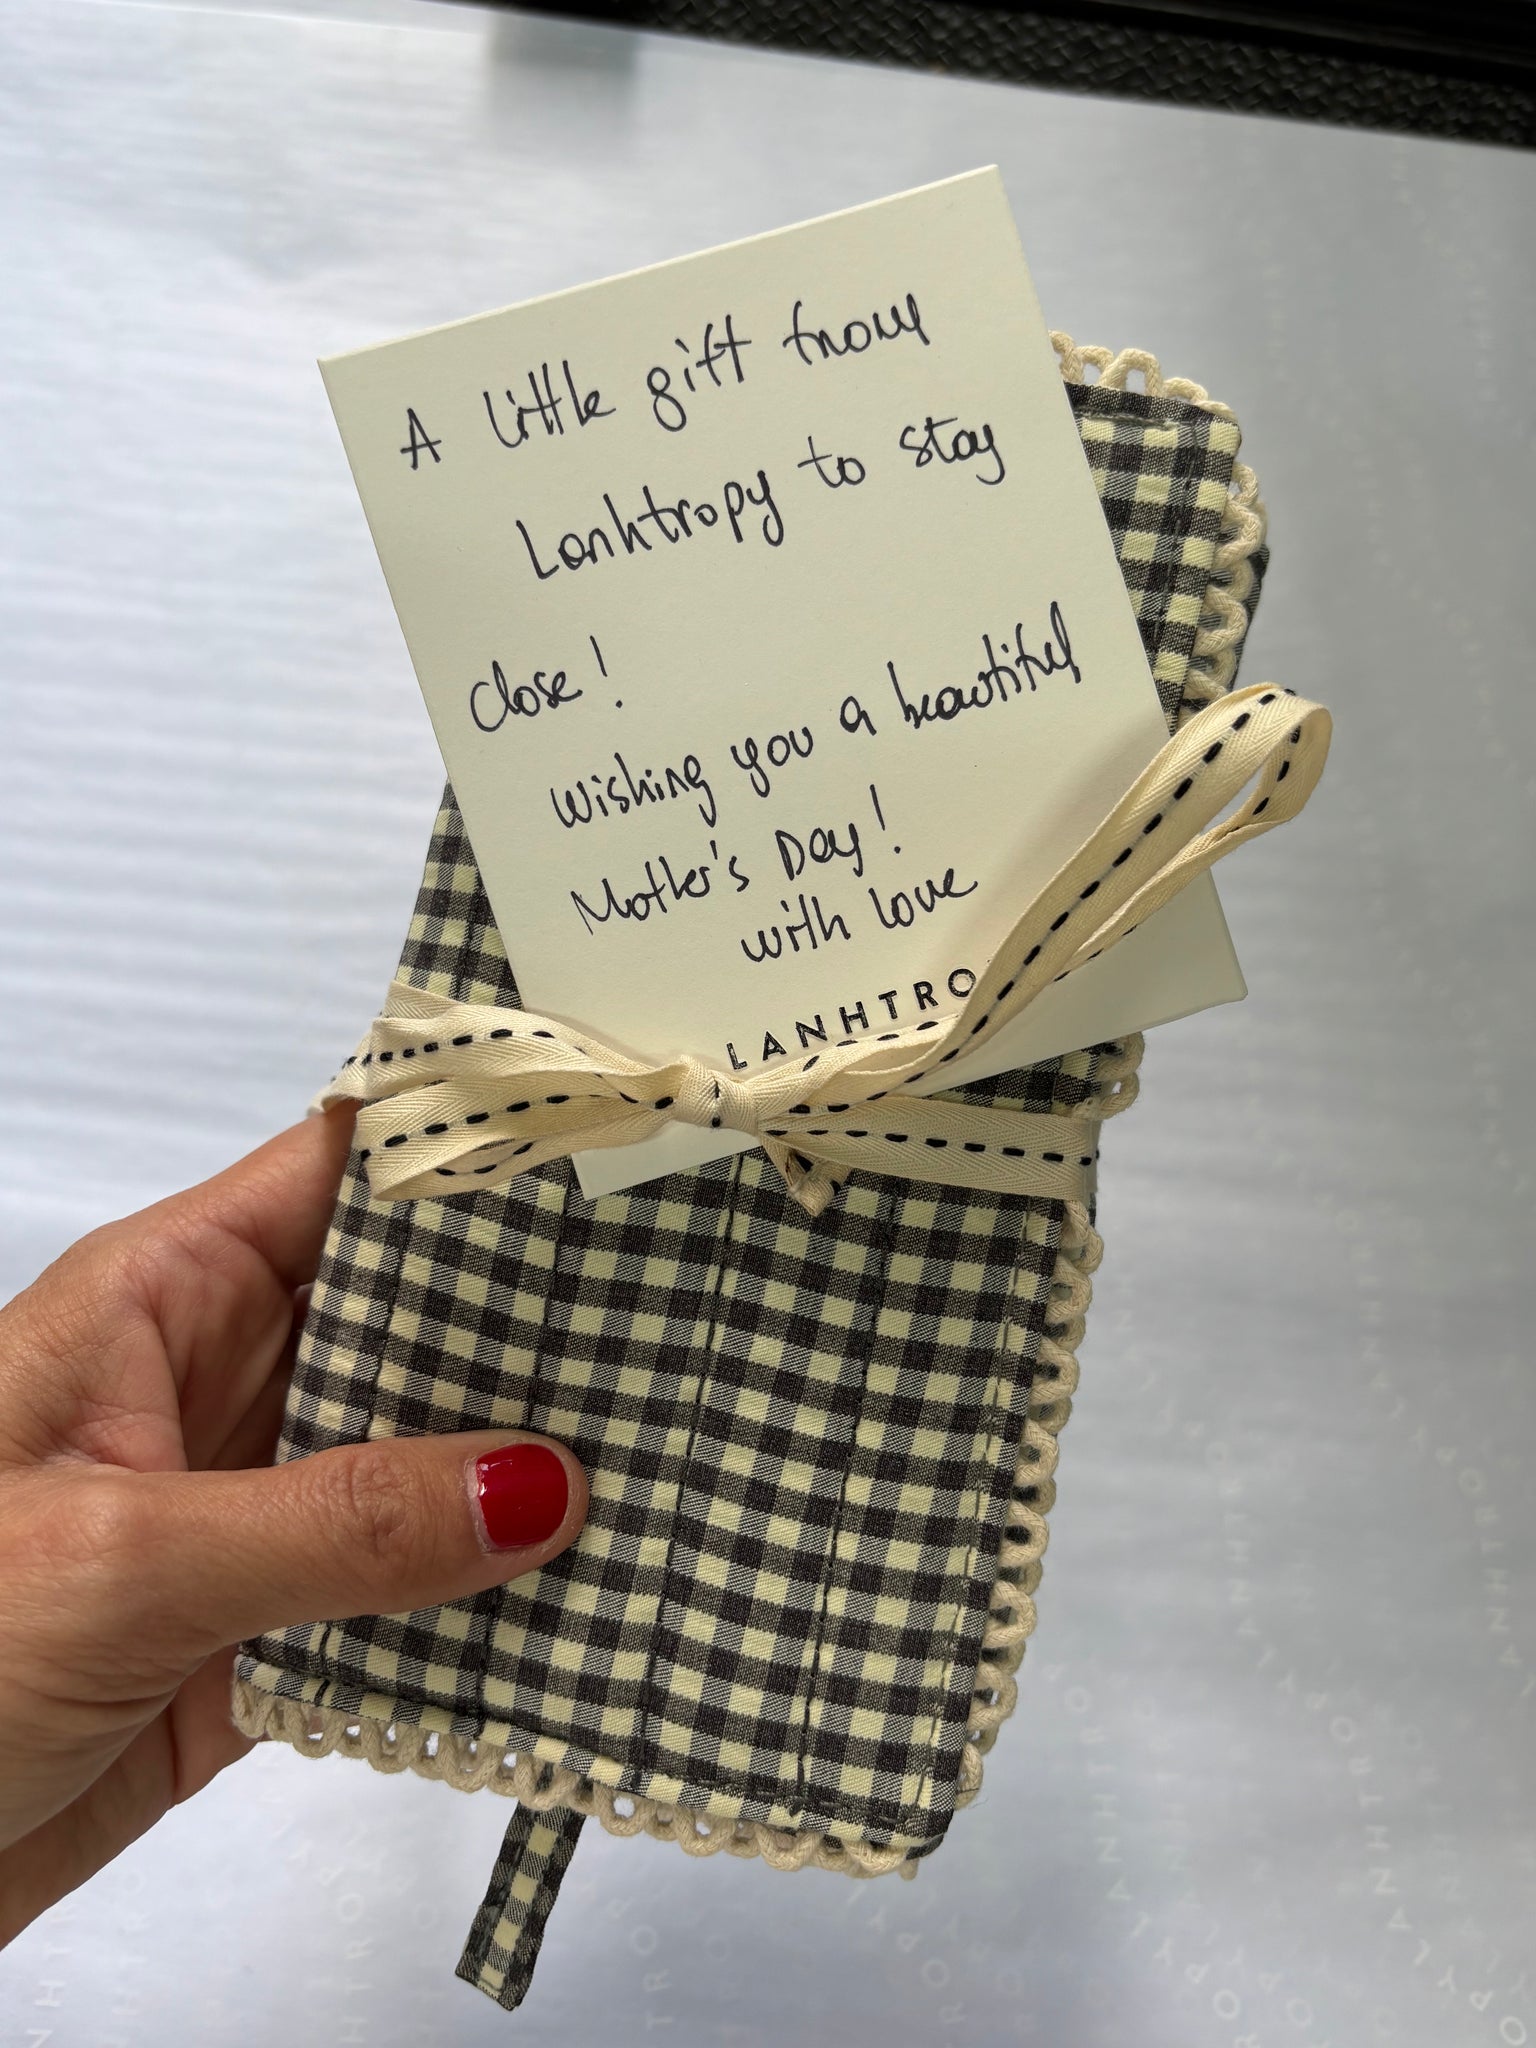 A little gift from
Lanhtropy to stay
Close!
Wishing you a beautiful
Mother's Day!
with love
LANHTRO